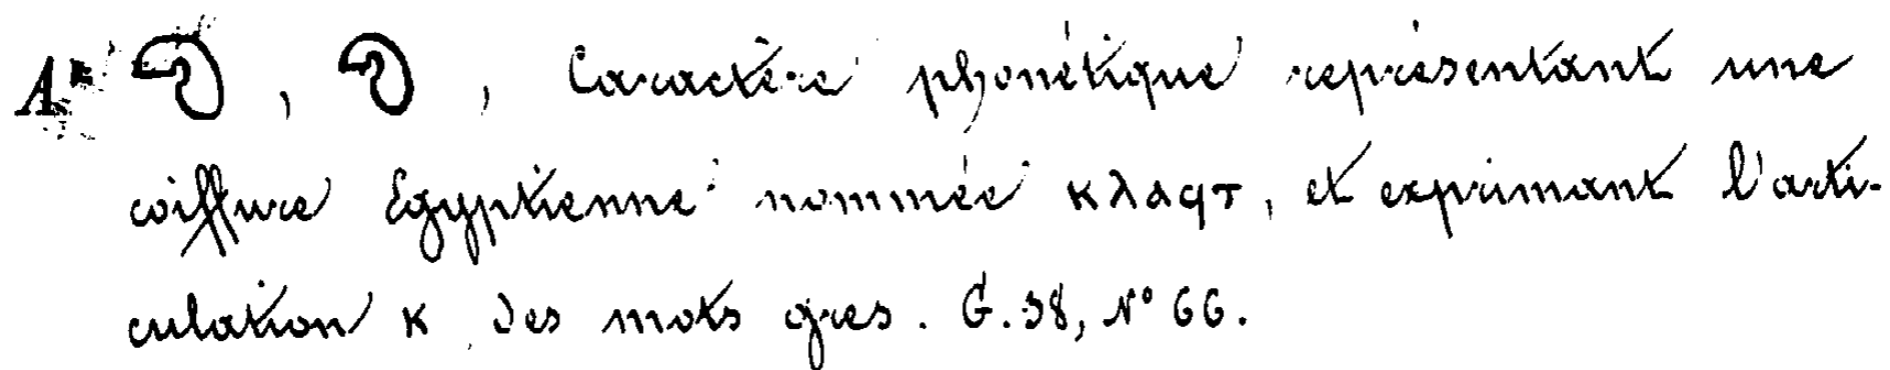 , , Caractère phonétique représentant une
coiffure Egyptienne nommée ⲕⲗⲁϥⲧ, et exprimant l'arti-
culation ⲕ des mots grecs. G. 38, N° 66.